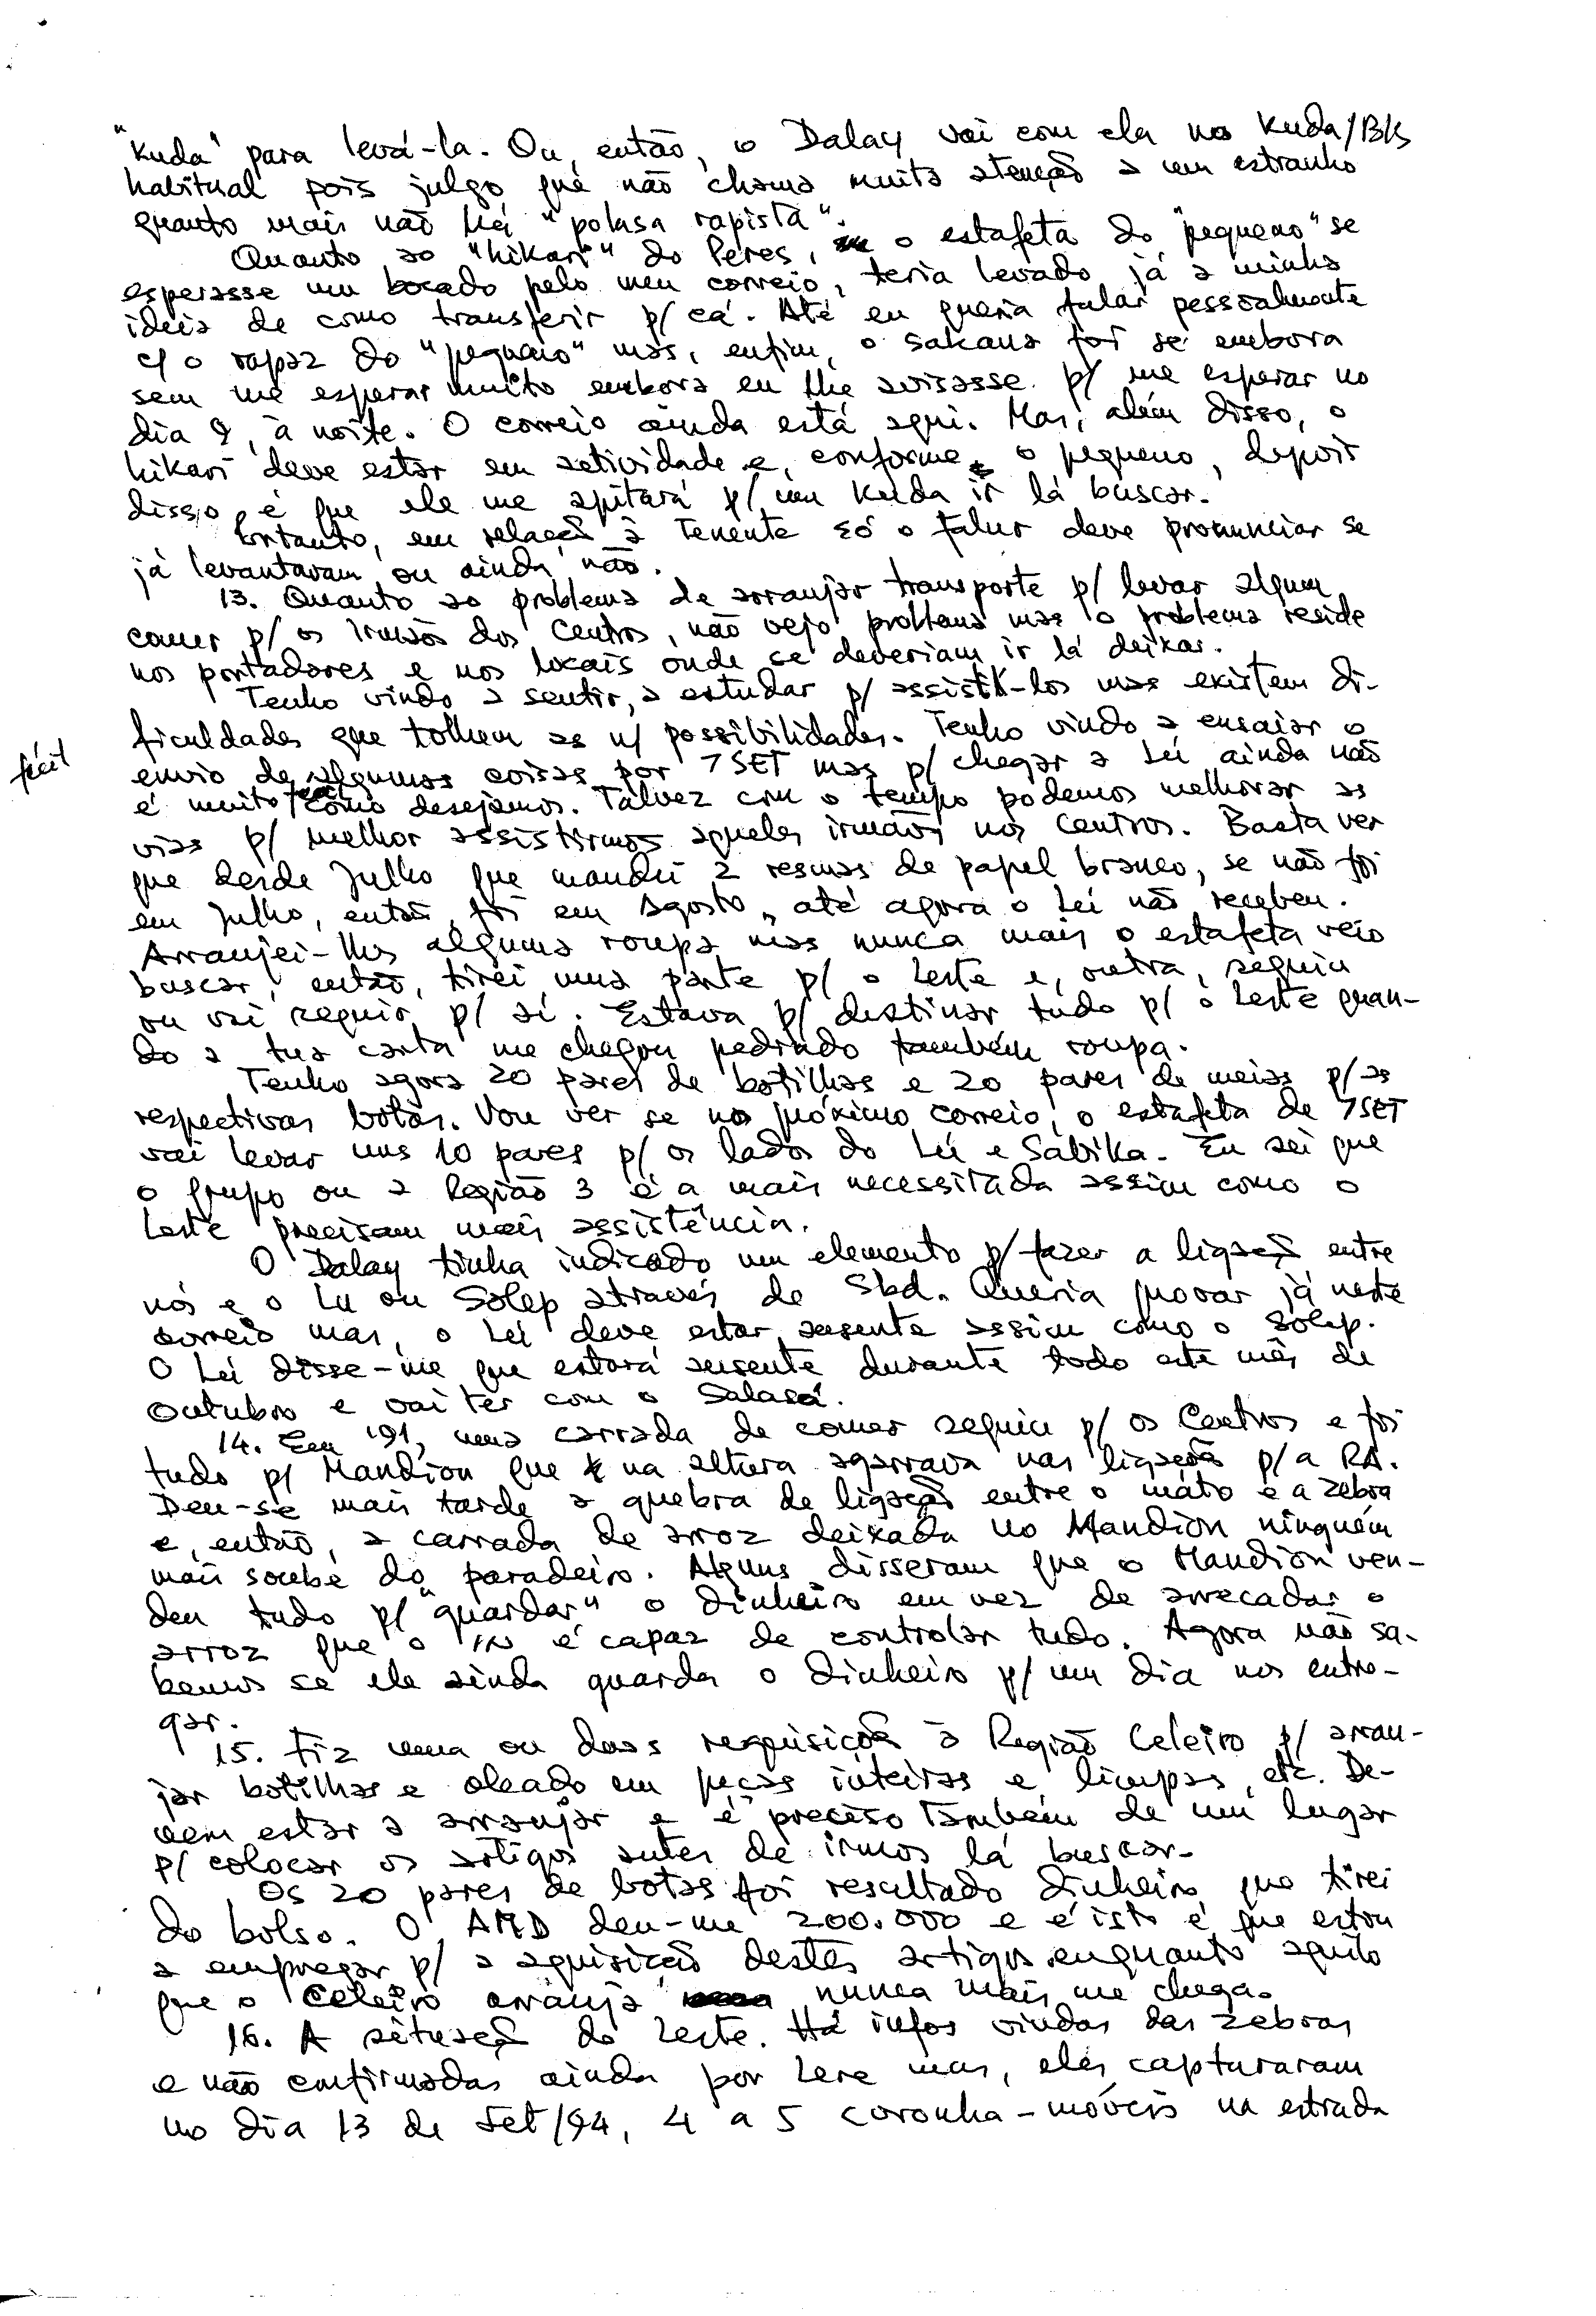 "Kuda" para levá-la. Ou, então, o Dalay vai com ela no Kuda/BIS
habitual pois julgo que não chama muita atenção a um estranho
quanto mais não há "polasa rapista".
Quanto ao "hikari" do Peres, o estafeta do "pequeno" se
esperasse um bocado pelo meu correio, teria levado já a minha
ideia de como transferir p/ cá. Até eu queria falar pessoalmente
c/ o rapaz do "pequeno" mas, enfim, o sakana foi se embora
sem me esperar muito embora eu lhe avisasse p/ me esperar no
dia 9, à noite. O correio ainda está aqui. Mas, além disso, o
hikari deve estar em actividade e, conforme o pequeno, depois
disso, é que ele me apitará p/ um Kuda ir lá buscar.
Portanto, em relação à Tenente só o Falur deve pronunciar se
já levantavam ou ainda não.
13. Quanto ao problema de arranjar transporte p/ levar algum
comer p/ os irmãos dos Centros, não vejo problema mas o problema reside
nos portadores e nos locais onde se deveriam ir lá deixar.
Tenho vindo a sentir, a estudar p/ assistí-los mas existem di-
ficuldades que tolhem as n/ possibilidades. Tenho vindo a ensaiar o
fácil
envio de algumas coisas por 7SET mas p/ chegar a Lei ainda não
é muito fácil como desejamos. Talvez com o tempo podemos melhorar as
vias p/ melhor assistirmos aqueles irmãos nos Centros. Basta ver
que desde Julho que mandei 2 resmas de papel branco, se não foi
em Julho, então, foi em Agosto, até agora o Lei não recebeu.
Arranjei-lhes alguma roupa mas nunca mais o estafeta veio
buscar, então, tirei uma parte p/ o Leste e, outra, seguiu
ou vai seguir p/ aí. Estava p/ destinar tudo p/ o Leste quan-
do a tua carta me chegou pedindo também roupa.
Tenho agora 20 pares de botilhas e 20 pares de meias p/ as
respectivas botas. Vou ver se no próximo correio, o estafeta de 7SET
vai levar uns 10 pares p/ os lados do Lei e Sabika. Eu sei que
o grupo ou a Região 3 é a mais necessitada assim como o
Leste precisam mais assistência.
O Dalay tinha indicado um elemento p/ fazer a ligação entre
nós e o Lu ou Solep através de Sbd. Queria provar já neste
correio mas, o Lei deve estar ausente assim como o Solep.
O Lei disse-me que estará ausente durante todo este mês de
Outubro e vai ter com o Salasá.
14. Em '91, uma carrada de comer seguiu p/ os Centros e foi
tudo p/ Mandion que na altura agarrava nas ligações p/ a RA.
Deu-se mais tarde a quebra de ligação entre o mato e a zebra
e, então, a carrada de arroz deixada no Mandion ninguém
mais soube do paradeiro. Alguns disseram que o Mandion ven-
deu tudo p/ "guardar" o dinheiro em vez de arrecadar o
arroz que o IN é capaz de controlar tudo. Agora não sa-
bemos se ele ainda guarda o dinheiro p/ um dia nos entre-
gar.
15. Fiz uma ou duas requisições à Região Celeiro p/ arran-
jar botilhas e oleado em peças inteiras e limpas, etc. De-
vem estar a arranjar e é preciso também de um lugar
p/ colocar os artigos antes de irmos lá buscar.
Os 20 pares de botas foi resultado dinheiro que tirei
do bolso. O AMD deu-me 200.000 e é isto é que estou
a empregar p/ a aquisição destes artigos enquanto aquilo
que o Celeiro arranja nunca mais me chega.
16. A situação do Leste. Há infos vindas das zebras
e não confirmadas ainda por Lere mas, eles capturaram
no dia 13 de Set/94, 4 a 5 coronha-móveis na estrada